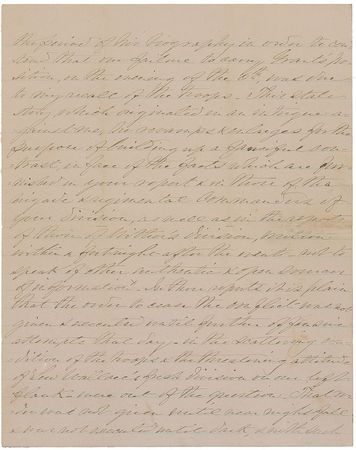 this period of his biography, in order to con-
tend that our failure to carry Grant's po-
sition, on the evening of the 6th, was due
to my recall of the troops. This stale
story, which originated in an intrigue a-
gainst me, he revamps & enlarges for the
purpose of building up a fanciful con-
trast, in face of the facts which are fur-
nished in your report & in those of the
brigade & regimental Commanders of
your Division, as well as in the reports
of those of Withers's Division, written
within a fortnight after the event – not to
speak of other authentic & open sources
of information. In those reports it is plain
that the order to cease the conflict was not
given & executed until further offensive
attempts that day – in the scattered con-
dition of the troops & the threatening attitude
of Lew Wallace's fresh division on our left
flank – were out of the question. That or-
der was not given until near night fall
& was not executed until dark, & with such